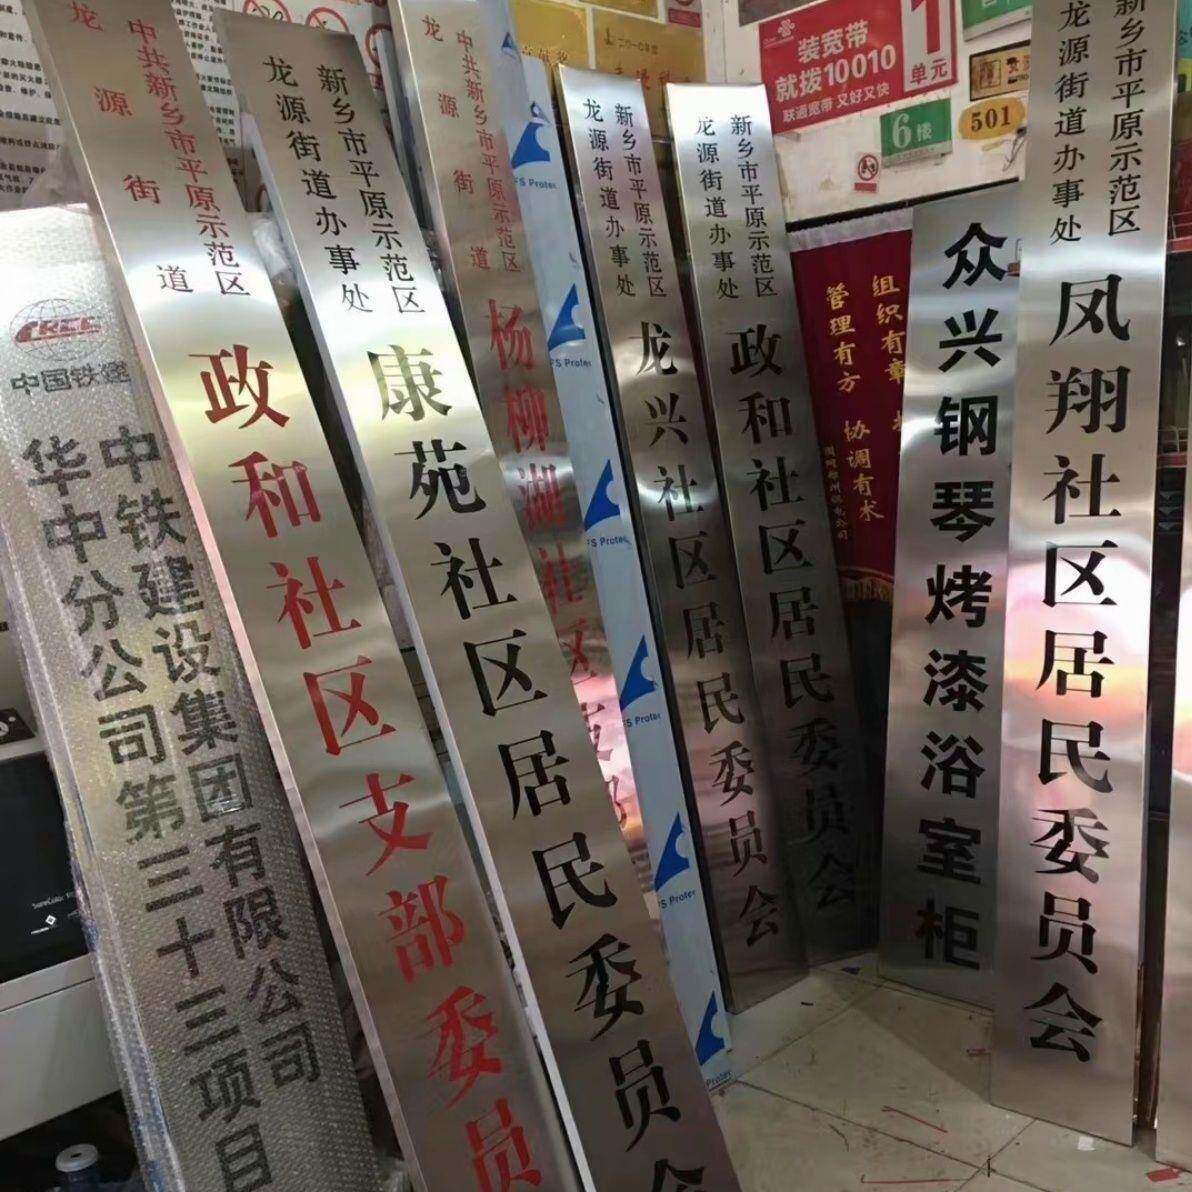 CRCC
中国铁建
中铁建设集团有限公司
华中分公司第三十三项目
中共新乡市平原示范区
龙源街道
政和社区支部委员
新乡市平原示范区
龙源街道办事处
康苑社区居民委员会
中共新乡市平原示范区
龙源街道
杨柳湖社区支部
FS Protec
FS Protec
FS Protec
FS Protec
FS Protec
Protec
新乡市平原示范区
龙源街道办事处
龙兴社区居民委员会
新乡市平原示范区
龙源街道办事处
政和社区居民委员会
二〇一〇年度
装宽带
就拨10010
联通宽带 又好又快
1
单元
6楼
501
组织有章
管理有方 协调有术
众兴钢琴烤漆浴室柜
新乡市平原示范区
龙源街道办事处
凤翔社区居民委员会